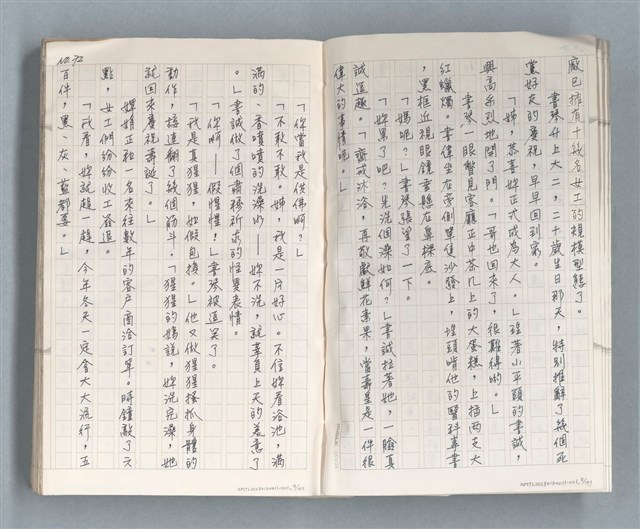 廠已擁有十幾名女工的規模型態了。
書琴升上大二，二十歲生日那天，特別推辭了幾個死
黨好友的慶祝，早早回到家。
「姊，恭喜妳正式成為大人。」理著小平頭的書誠，
興高采烈地開了門。「哥也回來了，很難得哟。」
書琴一眼瞥見客廳正中茶几上的大蛋糕，上插兩支大
紅蠟燭。書偉坐在旁側單隻沙發上，埋頭啃他的醫科專書
，黑框近視眼鏡垂懸在鼻樑底。
「媽呢？」書琴張望了一下。
「妳累了吧？先洗個澡如何？」書誠拉著她，一臉真
誠逗趣。「齋戒沐浴，再敬獻鮮花素果，當壽星是一件很
偉大的事情呢。」
NO. 72
「你當我是供佛啊？」
「不敢不敢。姊，我是一片好心。不信妳看浴池，滿
滿的、香噴噴的洗澡水——妳不洗，就辜負上天的美意了
。」書誠做了個肅穆祈求的怪異表情。
「你啊——假惺惺，」書琴被逗笑了。
「我是真猩猩，如假包換。」他又做猩猩搔抓身體的
動作，接連翻了幾個筋斗。「猩猩的媽說，妳洗完澡，她
就回來慶祝壽誕了。」
嫦娟正和一名來往數年的客戶商洽訂單。時鐘敲了六
點，女工們紛紛收工登退。
「我看，妳就趕一趕，今年冬天一定會大大流行，五
百件，黑、灰、藍都要。」